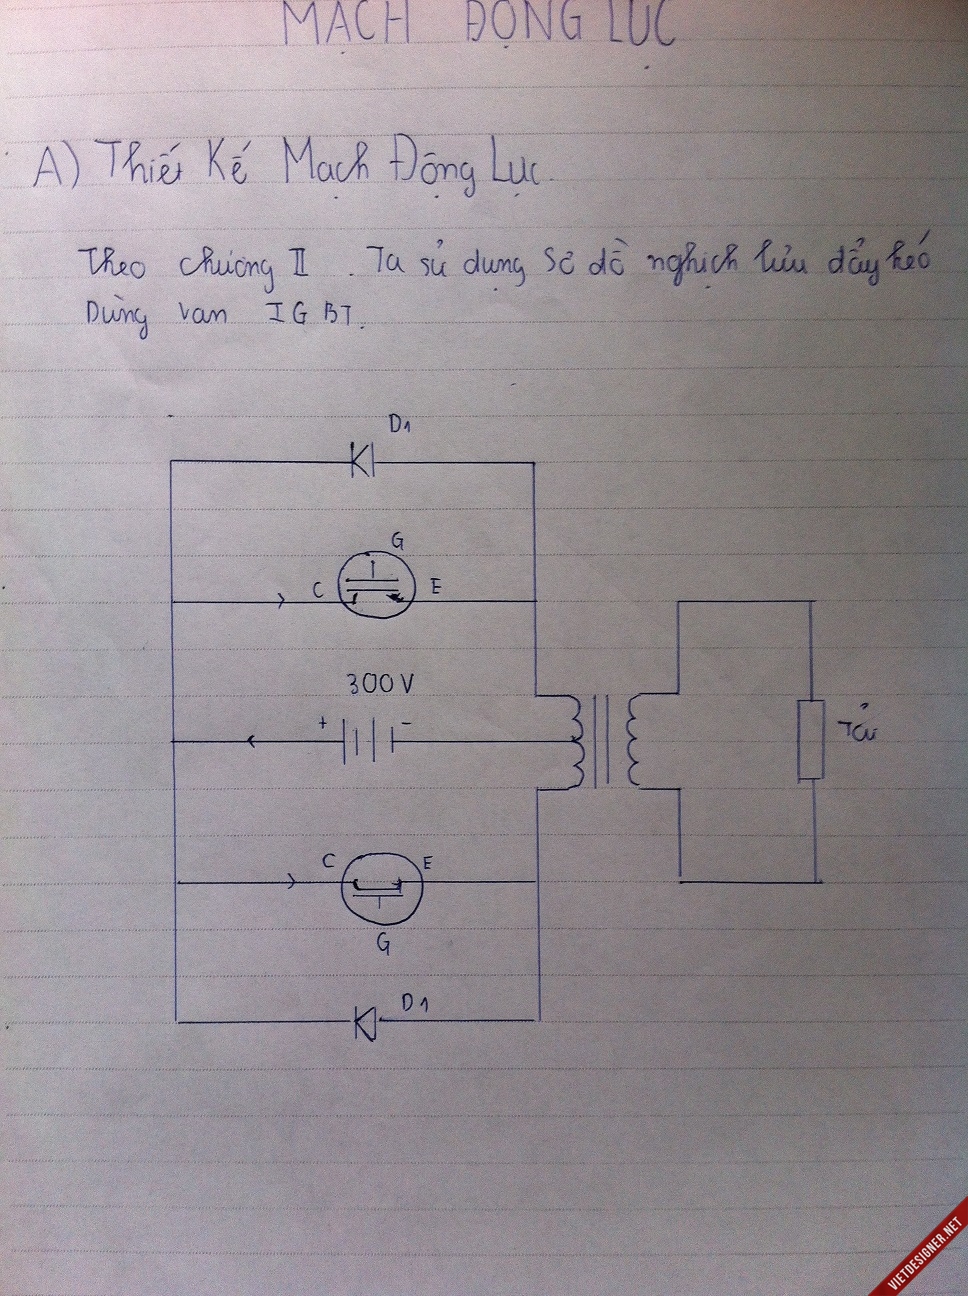 MẠCH ĐỘNG LỰC
A) Thiết Kế Mạch Động Lực.
Theo chương II. Ta sử dụng Sơ đồ nghịch lưu đẩy kéo
Dùng van IGBT.
D1
G
C E
300V
+ -
Tải
C E
G
D1
VIETDESIGNER.NET